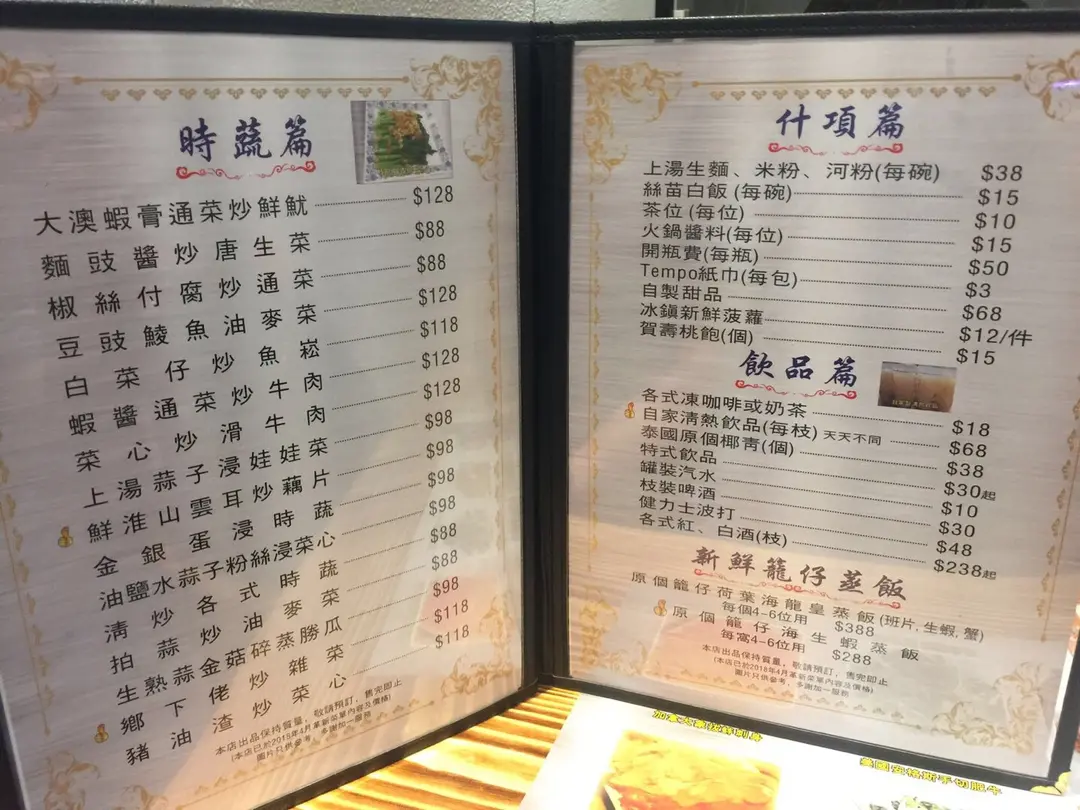 時蔬篇
大澳蝦膏通菜炒鮮魷 $128
麵豉醬炒唐生菜 $88
椒絲付腐炒通菜 $88
豆豉鯪魚油麥菜 $128
白菜仔炒魚崧 $118
蝦醬通菜炒牛肉 $128
菜心炒滑牛肉 $128
上湯蒜子浸娃娃菜 $98
鮮淮山雲耳炒藕片 $98
金銀蛋浸時蔬 $98
油鹽水蒜子粉絲浸菜心 $98
清炒各式時蔬 $88
拍蒜炒油麥菜 $88
生熟蒜金菇碎蒸勝瓜 $98
鄉下佬炒雜菜 $118
豬油渣炒菜心 $118
本店出品保持質量，敬請預訂，售完即止
(本店已於2018年4月革新菜單內容及價格)
圖片只供參考，多謝加一服務
什項篇
上湯生麵、米粉、河粉(每碗) $38
絲苗白飯(每碗) $15
茶位(每位) $10
火鍋醬料(每位) $15
開瓶費(每瓶) $50
Tempo紙巾(每包) $3
自製甜品 $68
冰鎮新鮮菠蘿 $12/件
賀壽桃飽(個) $15
飲品篇
各式凍咖啡或奶茶 $18
自家清熱飲品(每枝)天天不同 $68
泰國原個椰青(個) $38
特式飲品 $30起
罐裝汽水 $10
枝裝啤酒 $30
健力士波打 $48
各式紅、白酒(枝) $238起
新鮮籠仔蒸飯
原個籠仔荷葉海龍皇蒸飯(班片,生蝦,蟹)
每個4-6位用 $388
原個籠仔海生蝦蒸飯
每窩4-6位用 $288
本店出品保持質量，敬請預訂，售完即止
(本店已於2018年4月革新菜單內容及價格)
圖片只供參考，多謝加一服務